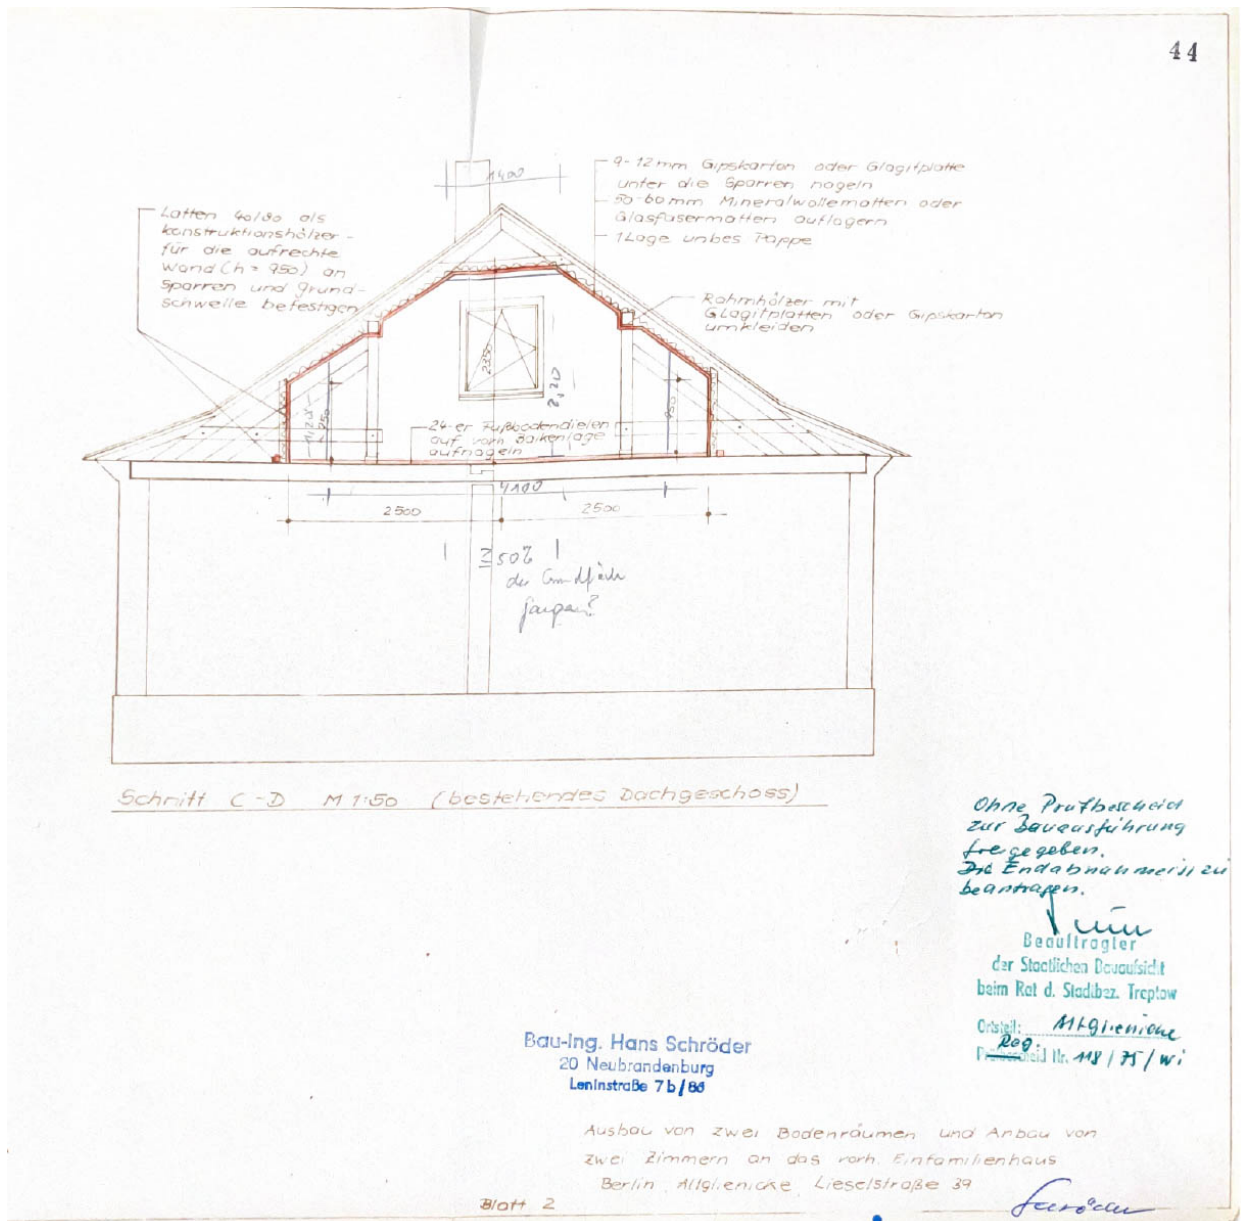 44
1400
9-12 mm Gipskarton oder Glagitplatte
unter die Sparren nageln
50-60mm Mineralwollematten oder
Glasfasermatten auflagern
1 Lage unbes Pappe
Latten 40/80 als
konstruktionshölzer
für die aufrechte
Wand (h = 950) an
Sparren und Grund-
schwelle befestigen
Rahmhölzer mit
Glagitplatten oder Gipskarton
umkleiden
2350
2,20
950
950
24-er Fußbodendielen
auf vorh Balkenlage
aufnageln
4100
2500 2500
≥50%
der Grundfläche
Schnitt C-D M 1:50 (bestehendes Dachgeschoss)
Ohne Prüfbescheid
zur Bauausführung
freigegeben.
Die Endabnahme ist zu
beantragen.
Beauftragter
der Staatlichen Bauaufsicht
beim Rat d. Stadtbez. Treptow
Ortsteil: Altglienicke
Reg.
Nr. 118 / 75 / Wi
Bau-Ing. Hans Schröder
20 Neubrandenburg
Leninstraße 7b/86
Ausbau von zwei Bodenräumen und Anbau von
zwei Zimmern an das vorh. Einfamilienhaus
Berlin Altglienicke, Lieselstraße 39
Blatt 2
Schröder